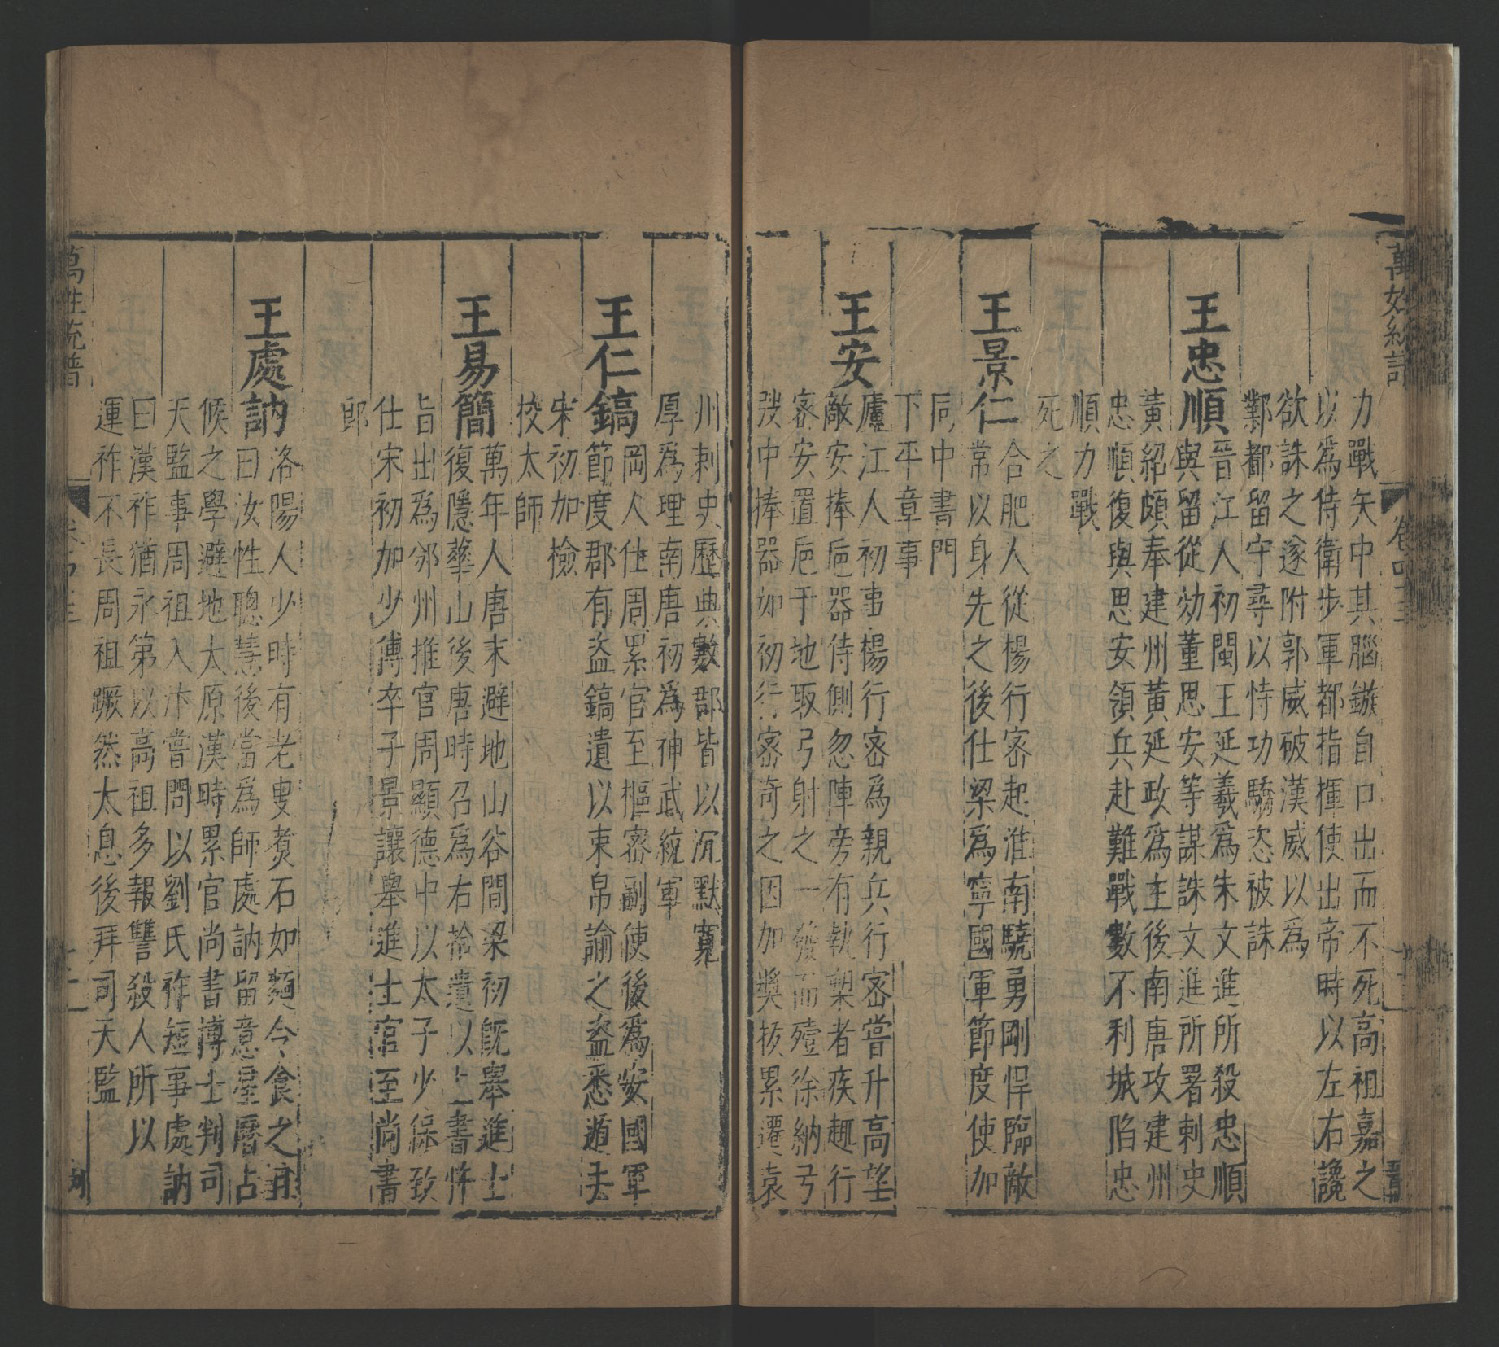 力戰矢中其腦鏃自口出而不死高祖嘉之
以爲侍衛步軍都指揮使出帝時以左右讒
欲誅之遂附郭威破漢威以爲
鄴都留守尋以恃功驕恣被誅
王忠順
晉江人初閩王延羲爲朱文進所殺忠順
與留從効董思安等謀誅文進所署刺史
黃紹頗奉建州黃延政爲主後南唐攻建州
忠順復與思安領兵赴難戰數不利城陷忠
順力戰
死之
王景仁
合肥人從楊行密起淮南驍勇剛悍臨敵
常以身先之後仕梁爲寧國軍節度使加
同中書門
下平章事
王安
廬江人初事楊行密爲親兵行密嘗升高望
敵安捧巵器侍側忽陣旁有執槊者疾趣行
密安置巵于地取弓射之一發而殪徐納弓
弢中捧器如初行密奇之因加奬拔累遷袁
州刺史歷典數郡皆以沉默寬
厚爲理南唐初爲神武統軍
王仁鎬
岡人仕周累官至樞密副使後爲安國軍
節度郡有盗鎬遣以束帛諭之盗悉遁去
宋初加檢
校太師
王易簡
萬年人唐末避地山谷間梁初旣舉進士
復隱華山後唐時召爲右拾遺以上書忤
旨出爲鄧州推官周顯德中以太子少保致
仕宋初加少傅卒子景讓舉進士官至尚書
郎
王處訥
洛陽人少時有老叟煑石如麵令食之且
曰汝性聰慧後當爲師處訥留意星曆占
候之學避地太原漢時累官尚書博士判司
天監事周祖入汴嘗問以劉氏祚短事處訥
曰漢祚猶永第以高祖多報讐殺人所以
運祚不長周祖蹶然太息後拜司天監